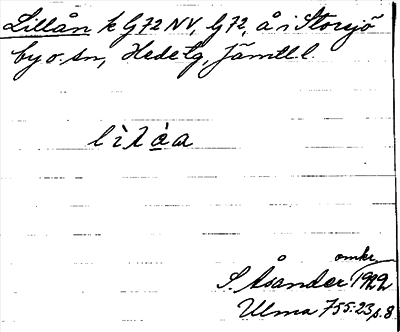 Lillån k G72 NV, G72, å i Storsjö
by o. sn, Hede tg, Jämtl. l.
lìlåa
omkr
S. Åsander 1922
Ulma 755:23 s. 8